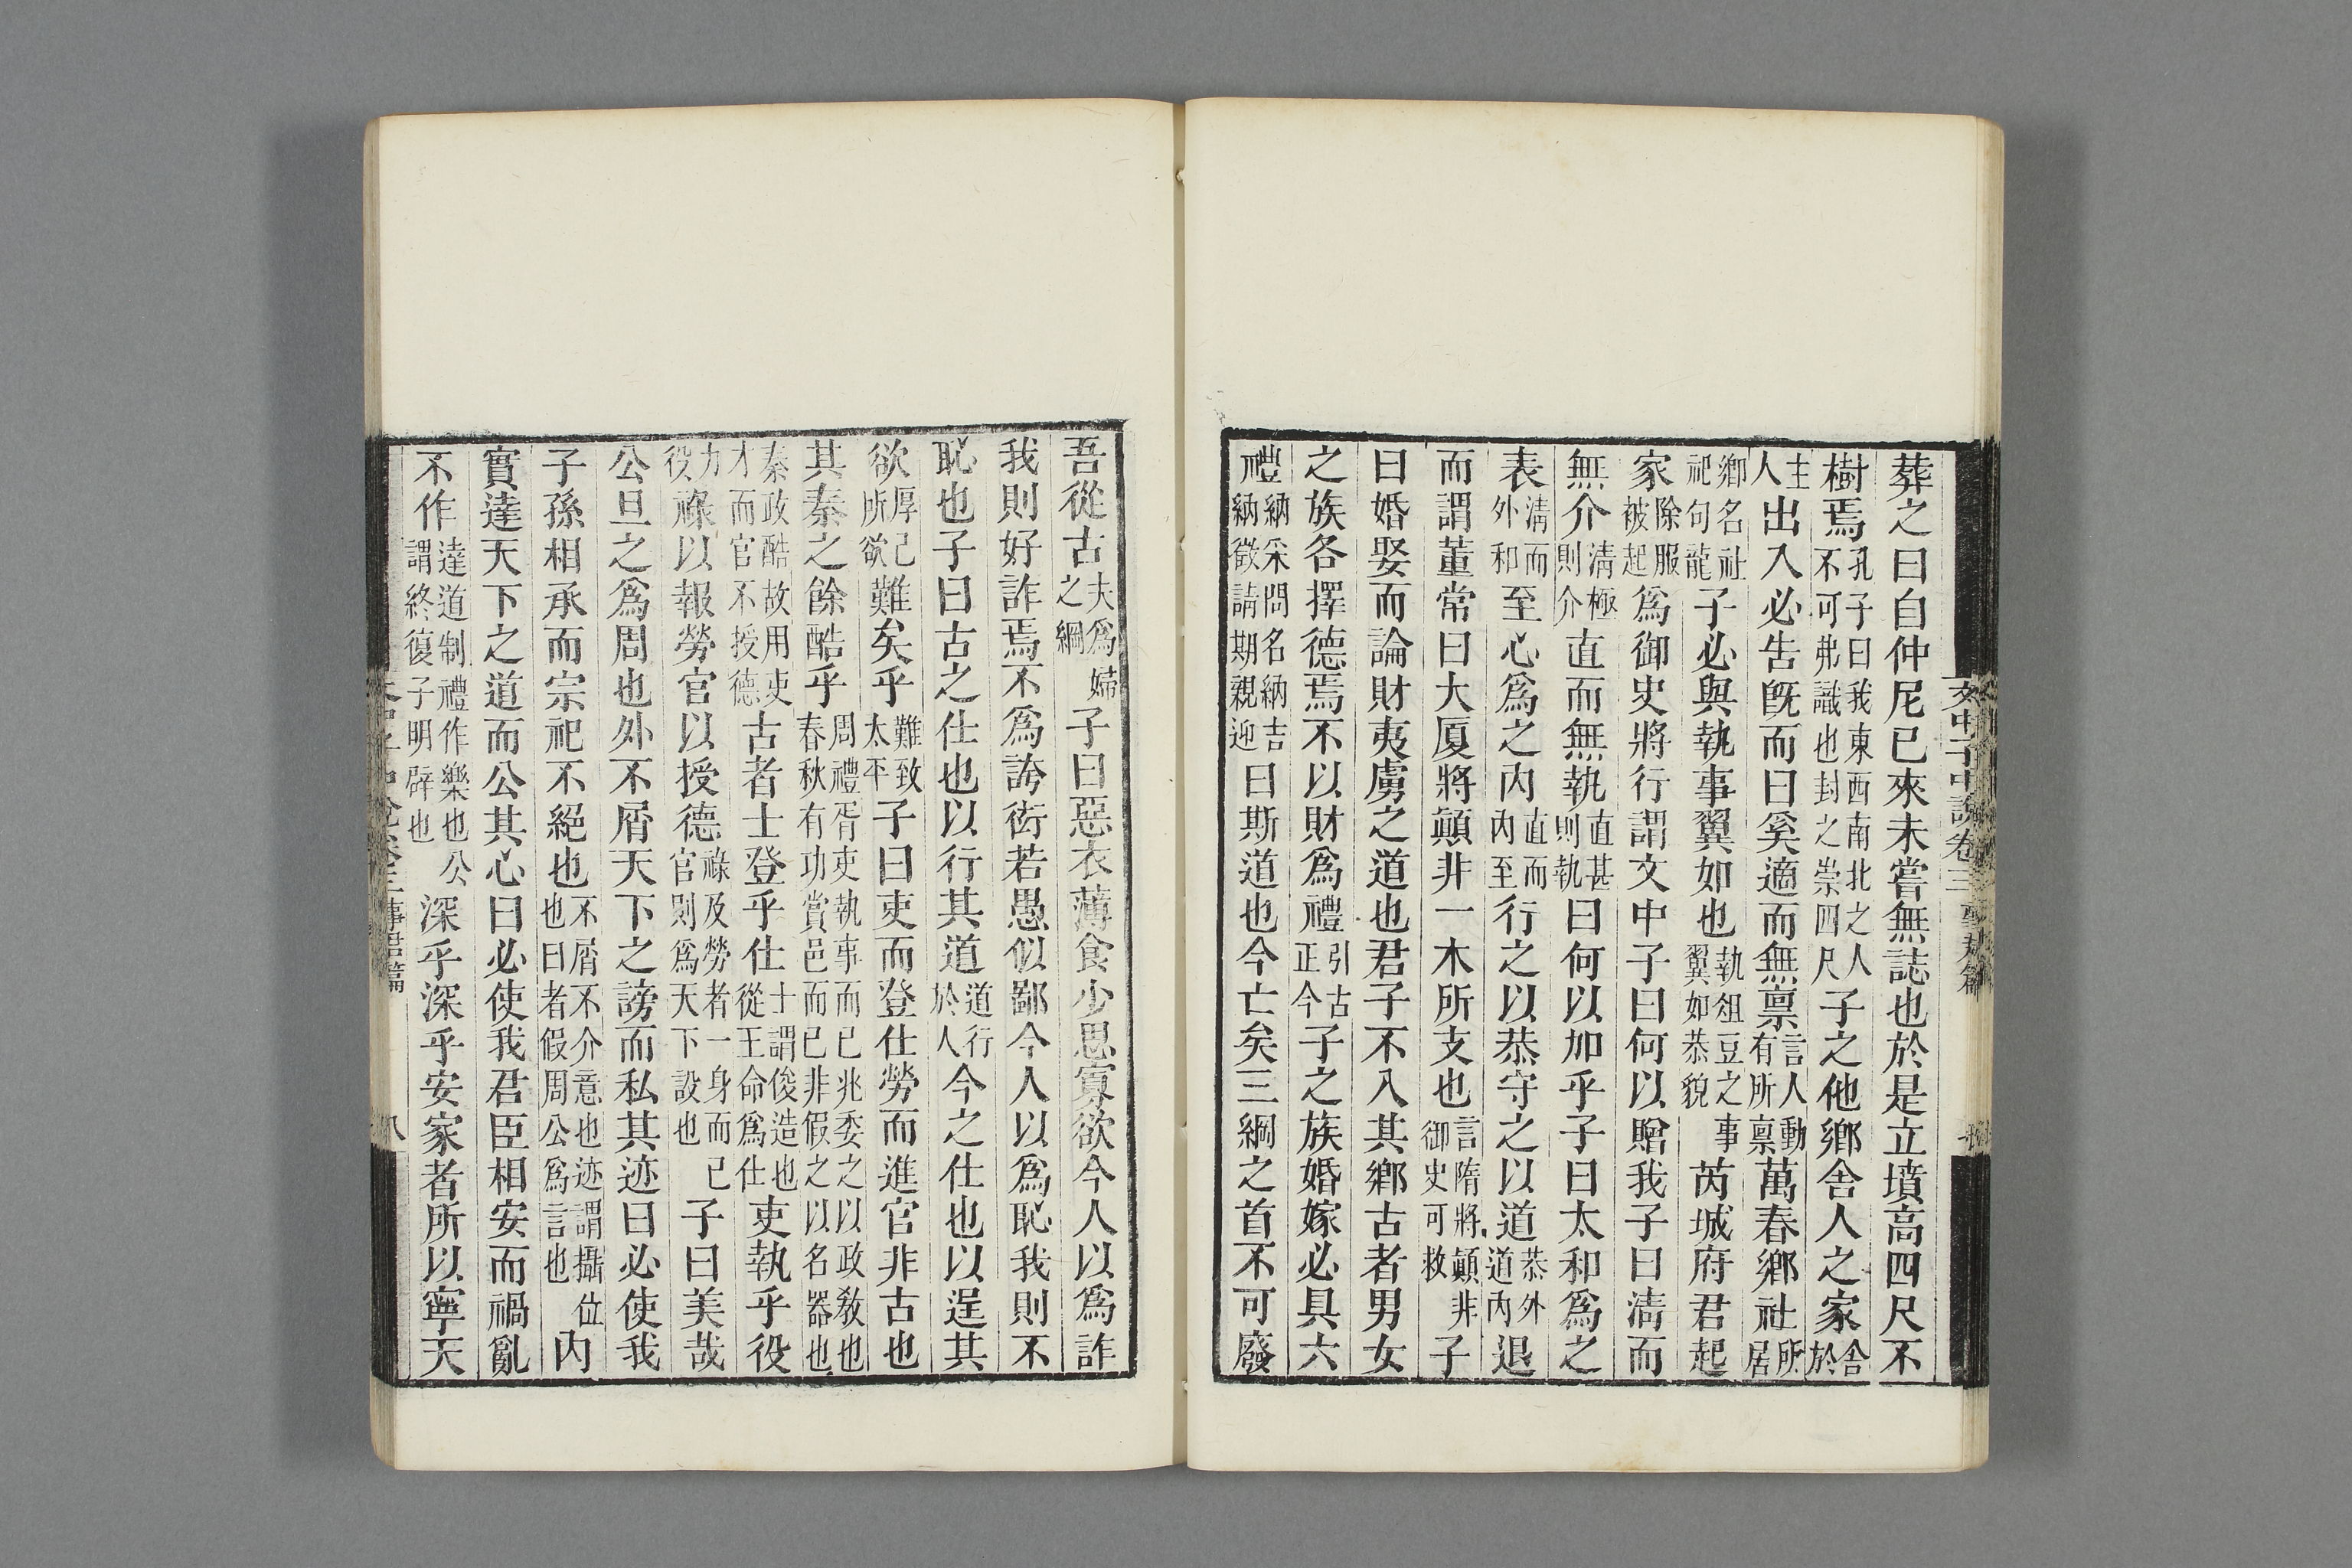 文中子中說卷三 事君篇
葬之曰自仲尼已來未嘗無誌也於是立墳高四尺不
樹焉孔子曰我東西南北之人不可弗識也封之崇四尺子之他鄉舍人之家舍於
主人出入必告旣而曰奚適而無稟言人動有所稟萬春鄉社所居
鄉名社祀句龍子必與執事翼如也執俎豆之事翼如恭貌芮城府君起
家除服被起爲御史將行謂文中子曰何以贈我子曰淸而
無介淸極則介直而無執直甚則執曰何以加乎子曰太和爲之
表淸而外和至心爲之內直而內至行之以恭守之以道恭外道內退
而謂董常曰大厦將顚非一木所支也言隋將顚非御史可救子
曰婚娶而論財夷虜之道也君子不入其鄉古者男女
之族各擇德焉不以財爲禮引古正今子之族婚嫁必具六
禮納采問名納吉納徵請期親迎曰斯道也今亡矣三綱之首不可廢
吾從古夫爲婦之綱子曰惡衣薄食少思寡欲今人以爲詐
我則好詐焉不爲誇衒若愚似鄙今人以爲恥我則不
恥也子曰古之仕也以行其道道行於人今之仕也以逞其
欲厚己所欲難矣乎難致太平子曰吏而登仕勞而進官非古也
其秦之餘酷乎周禮胥吏執事而已兆委之以政敎也春秋有功賞邑而已非假之以名器也
秦政酷故用吏才而官不授德古者士登乎仕士謂俊造也從王命爲仕吏執乎役
力役祿以報勞官以授德祿及勞者一身而已官則爲天下設也子曰美哉
公旦之爲周也外不屑天下之謗而私其迹曰必使我
子孫相承而宗祀不絕也不屑不介意也迹謂攝位也曰者假周公爲言也內
實達天下之道而公其心曰必使我君臣相安而禍亂
不作達道制禮作樂也公謂終復子明辟也深乎深乎安家者所以寧天
事君篇 八